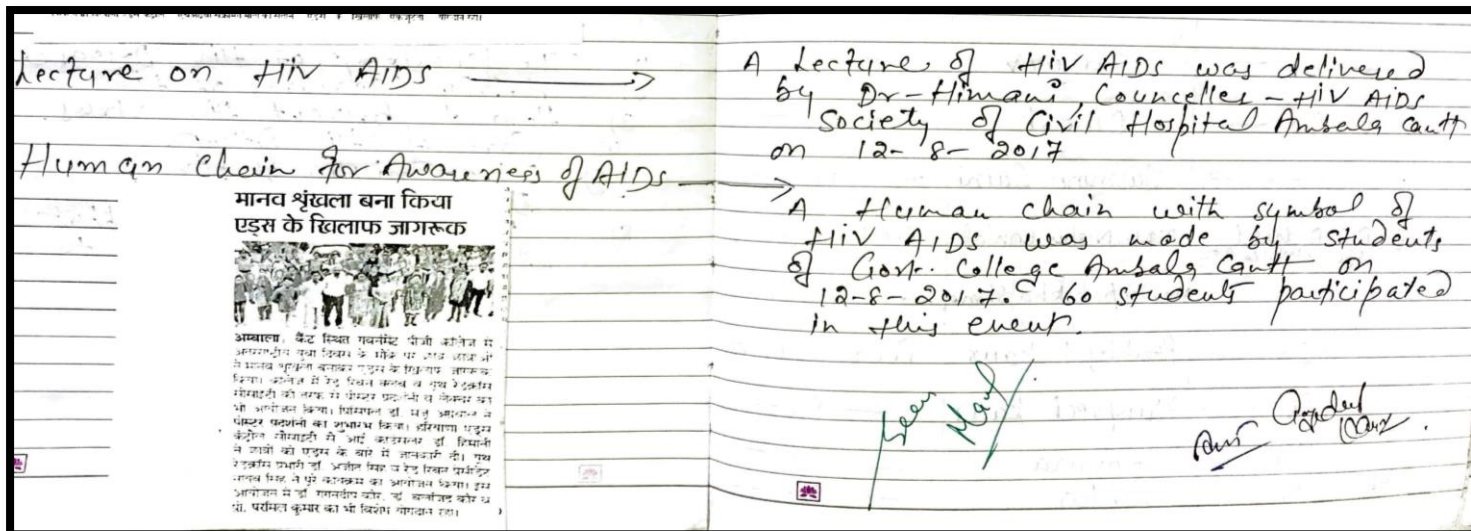 Lecture on HIV AIDS
Human Chain for Awareness of AIDs
मानव श्रृंखला बना किया
एड्स के खिलाफ जागरूक
अम्बाला, कैंट स्थित गवर्नमेंट पीजी कॉलेज में
अन्तरराष्ट्रीय युवा दिवस के मौके पर छात्र छात्राओं
ने मानव श्रृंखला बनाकर एड्स के खिलाफ जागरूक
किया। कॉलेज में रेड रिबन क्लब व यूथ रेडक्रॉस
सोसाइटी की तरफ से पोस्टर प्रदर्शनी व लेक्चर का
भी आयोजन किया। प्रिंसिपल डॉ. ने
पोस्टर प्रदर्शनी का शुभारंभ किया। हरियाणा एड्स
कंट्रोल सोसाइटी से आई काउंसलर डॉ हिमानी
ने छात्रों को एड्स के बारे में जानकारी दी। यूथ
रेडक्रॉस प्रभारी डॉ. अजीत सिंह व रेड रिबन
सिंह ने पूरे कार्यक्रम का आयोजन किया। इस
आयोजन में डॉ गगनदीप कौर, डॉ कौर व
प्रो. परमिल कुमार का भी विशेष योगदान रहा।
A Lecture of HIV AIDs was delivered
by Dr-Himani, Counceller-HIV AIDs
Society of Civil Hospital Ambala Cantt
on 12-8-2017
A Human chain with symbol of
HIV AIDs was made by students
of Govt. College Ambala Cantt on
12-8-2017. 60 students participated
in this event.
Seen